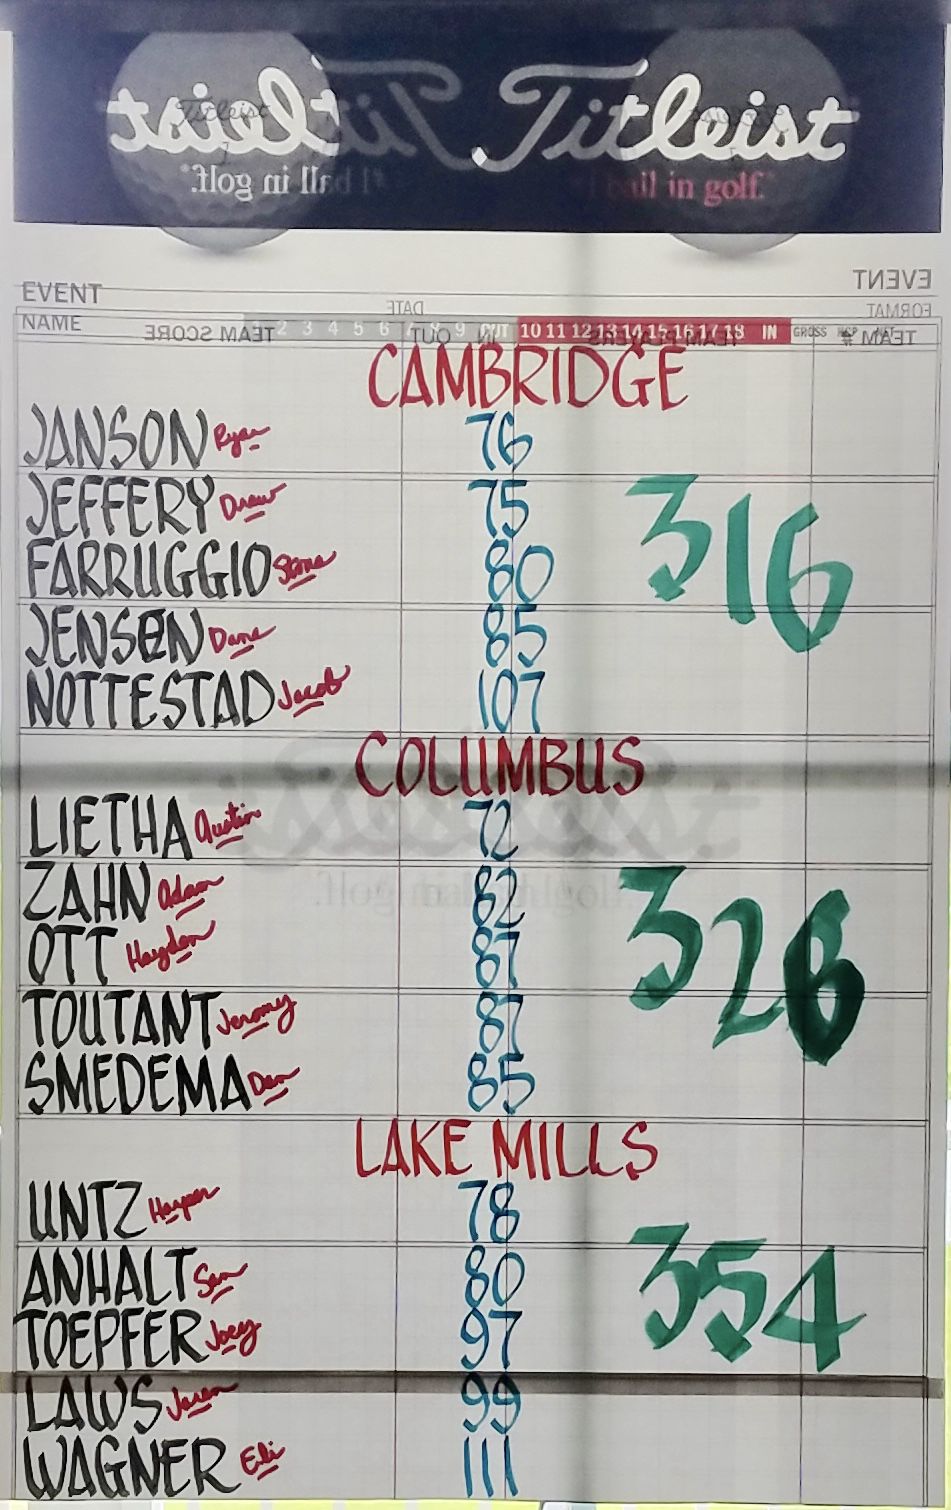 Titleist
#1 ball in golf.
EVENT
FORMAT
DATE
NAME 1 2 3 4 5 6 7 8 9 OUT 10 11 12 13 14 15 16 17 18 IN GROSS HCP NET
TEAM # TEAM PLAYERS IN OUT TEAM SCORE
CAMBRIDGE
JANSON Ryan 76
JEFFERY Drew 75
316
FARRUGGIO Stone 80
JENSEN Dane 85
NOTTESTAD Jacob 107
COLUMBUS
LIETHA Austin 72
ZAHN Adam 82
326
OTT Hayden 87
TOUTANT Jeromy 87
SMEDEMA Dan 85
LAKE MILLS
UNTZ Harper 78
ANHALT Sam 80
354
TOEPFER Joey 97
LAWS Jaren 99
WAGNER Eli 111